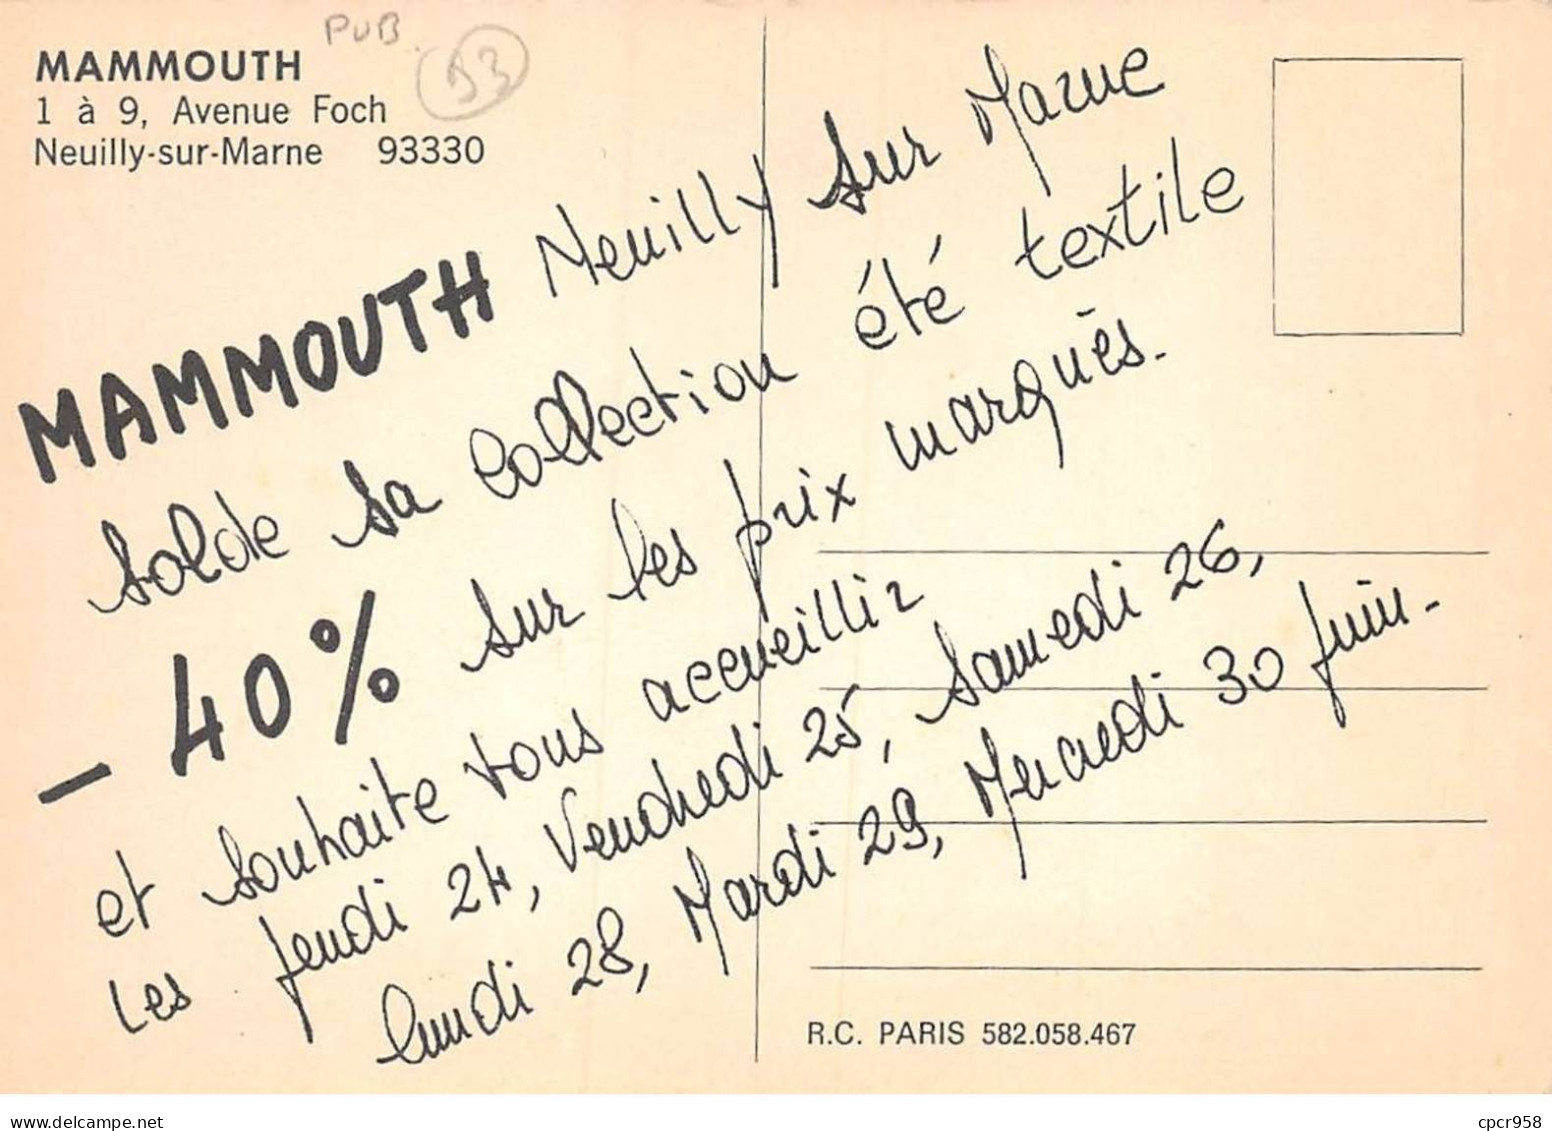 PUB
93
MAMMOUTH
1 à 9, Avenue Foch
Neuilly-sur-Marne 93330
MAMMOUTH Neuilly sur Marne
solde sa collection été textile
- 40% sur les prix marqués.
et souhaite vous accueillir
les jeudi 24, Vendredi 25, Samedi 26,
lundi 28, Mardi 29, Mercredi 30 juin.
R.C. PARIS 582.058.467
www.delcampe.net
cpcr958